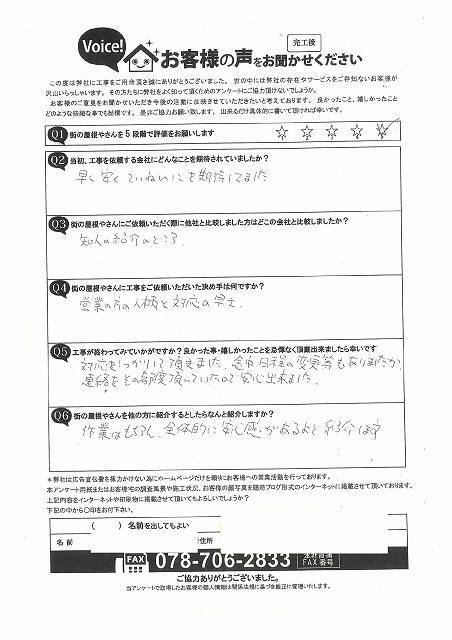 Voice!
お客様の声をお聞かせください
完工後
この度は弊社に工事をご用命頂き誠にありがとうございました。 世の中には弊社の存在やサービスをご存知ないお客様が
沢山いらっしゃいます。その方たちに弊社をよく知って頂くためのアンケートにご協力頂けないでしょうか。
お客様のご意見をお聞かせいただき今後の活動に反映させていただきたいと考えております。 良かったこと、嬉しかったこと
どのような些細な事でも結構です。 是非ご協力お願い致します。 出来るだけ具体的に書いて頂ければ幸いです。
Q1 街の屋根やさんを5段階で評価をお願いします
Q2 当初、工事を依頼する会社にどんなことを期待されていましたか?
早く安くていねいことを期待してました
Q3 街の屋根やさんにご依頼いただく際に他社と比較しました方はどこの会社と比較しましたか?
知人の紹介のところ
Q4 街の屋根やさんに工事をご依頼いただいた決め手は何ですか?
営業の方の人柄と対応の早さ
Q5 工事が終わってみていかがですか?良かった事・嬉しかったことを忌憚なく頂戴出来ましたら幸いです
対応をしっかりして頂きました。途中日程の変更等もありましたが、
連絡をその都度頂っていたので安心出来ました。
Q6 街の屋根やさんを他の方に紹介するとしたらなんと紹介しますか?
作業はもちろん、全体的に安心感があるよと紹介します
*弊社は広告宣伝費を極力かけない為にホームページだけを頼りにお客様への営業活動を行っております。
本アンケート用紙またはお客様宅の調査風景や施工状況、お客様の顔写真を随時ブログ形式のインターネットに掲載させて頂いております。
上記内容をインターネットや印刷物に掲載させて頂いてもよろしいでしょうか?
下記の中から○印をお付け下さい。
( ) 名前を出してもよい
名前
住所
FAX 078-706-2833
FAX番号
ご協力ありがとうございました。
当アンケートで取得したお客様の個人情報は関係法規に基づき厳正に管理いたします。